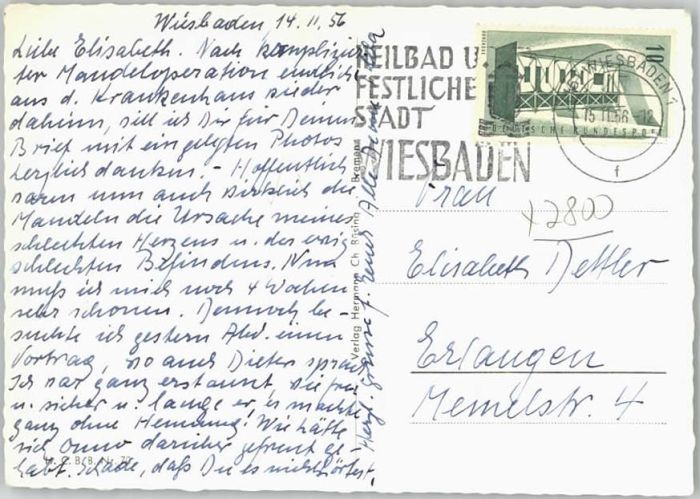 Wiesbaden 14.11.56
Liebe Elisabeth. Nach komplizier
ter Mandeloperation endlich
aus d. Krankenhaus wieder
daheim, will ich Dir für Deinen
Brief mit eingelegten Photos
herzlich danken. - Hoffentlich
waren nun auch wirklich die
Mandeln die Ursache meines
schlechten Herzens u. des ewig
schlechten Befindens. Nun
muß ich mich noch 4 Wochen
sehr schonen. Dennoch be-
suchte ich gestern Abd. einen
Vortrag, wo auch Dieter sprach.
Ich war ganz erstaunt, wie frei
u. sicher u. lange er es machte
ganz ohne Hemmung! Wie hätte
sich Omo darüber gefreut ge-
habt. Schade, daß Du es nicht hörtest.
Herzl. Grüsse f. Euch Alle Deine
Verlag Hermann Ch. Büsing Bremen
HEILBAD U.
FESTLICHE
STADT
WIESBADEN
10
DEUTSCHE BUNDESPOST
WIESBADEN 1
15.11.56.-12
f
Frau
x 2800
Elisabeth Dettler
Erlangen
Memelstr. 4